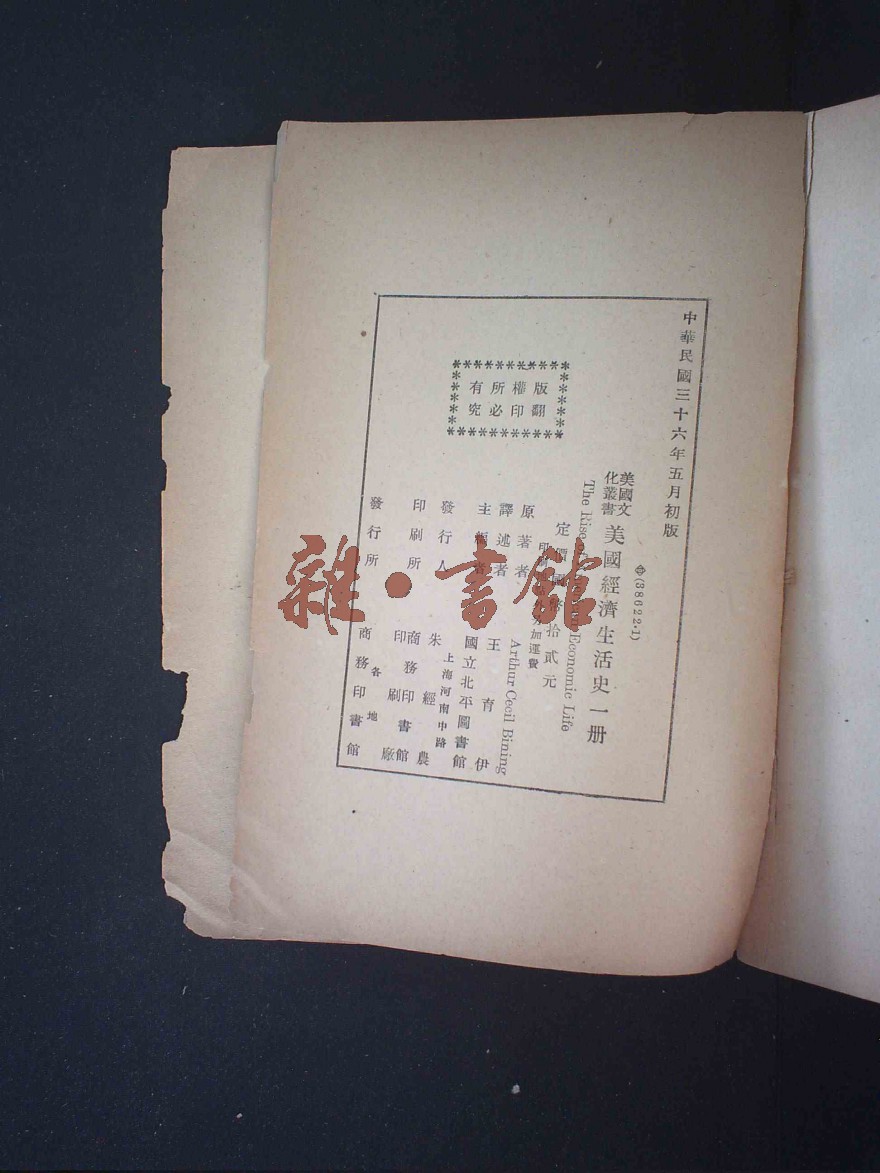 中華民國三十六年五月初版
⊕(38622·1)
美國文化叢書 美國經濟生活史一册
The Rise Economic Life
定價國幣拾貳元
加運費
原著者 Arthur Cecil Bining
譯述者 王育伊
主編者 國立北平圖書館
上海河南中路
發行人 朱經農
印刷所 商務印書館印刷廠
發行所 商務印書館
各地
版權所有
翻印必究
雜·書館